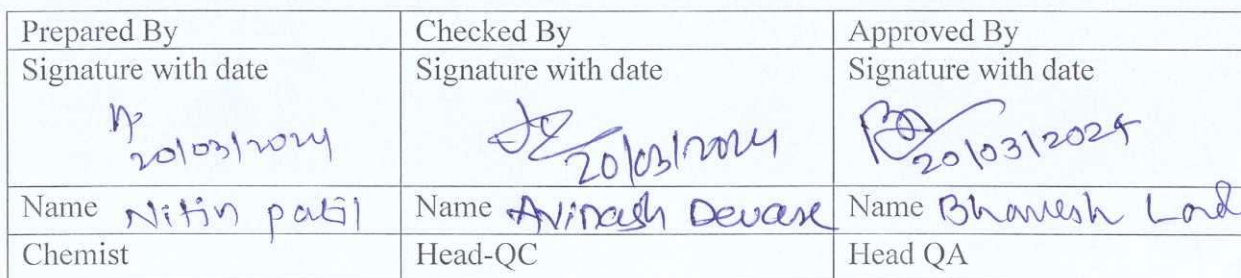 Prepared By Checked By Approved By
Signature with date Signature with date Signature with date
20/03/2024 20/03/2024 20/03/2024
Name Nitin patil Name Avinash Devare Name Bhavesh Lad
Chemist Head-QC Head QA